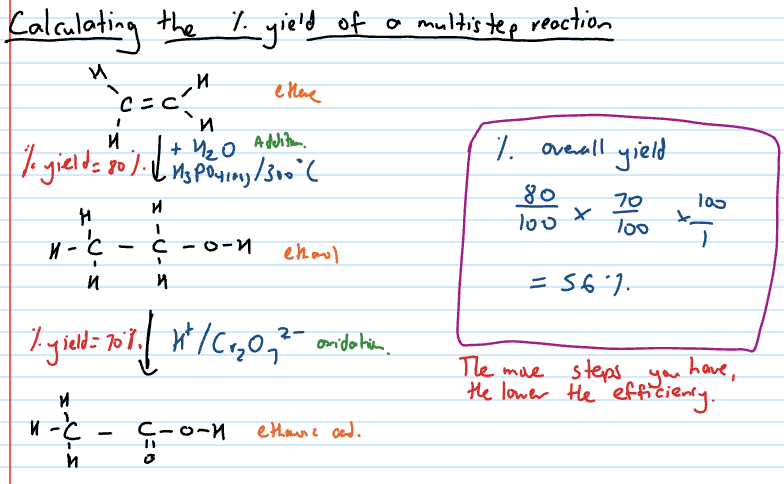 Calculating the % yield of a multistep reaction
H H
C = C
H H
ethene
% yield = 80%. + H2O Addition.
H3PO4(aq) / 300°C
H H
H - C - C - O - H ethanol
H H
% yield = 70%. H+ / Cr2O7 2- oxidation.
H
H - C - C - O - H ethanoic acid.
H O
% overall yield
80/100 x 70/100 x 100/1
= 56%.
The more steps you have,
the lower the efficiency.